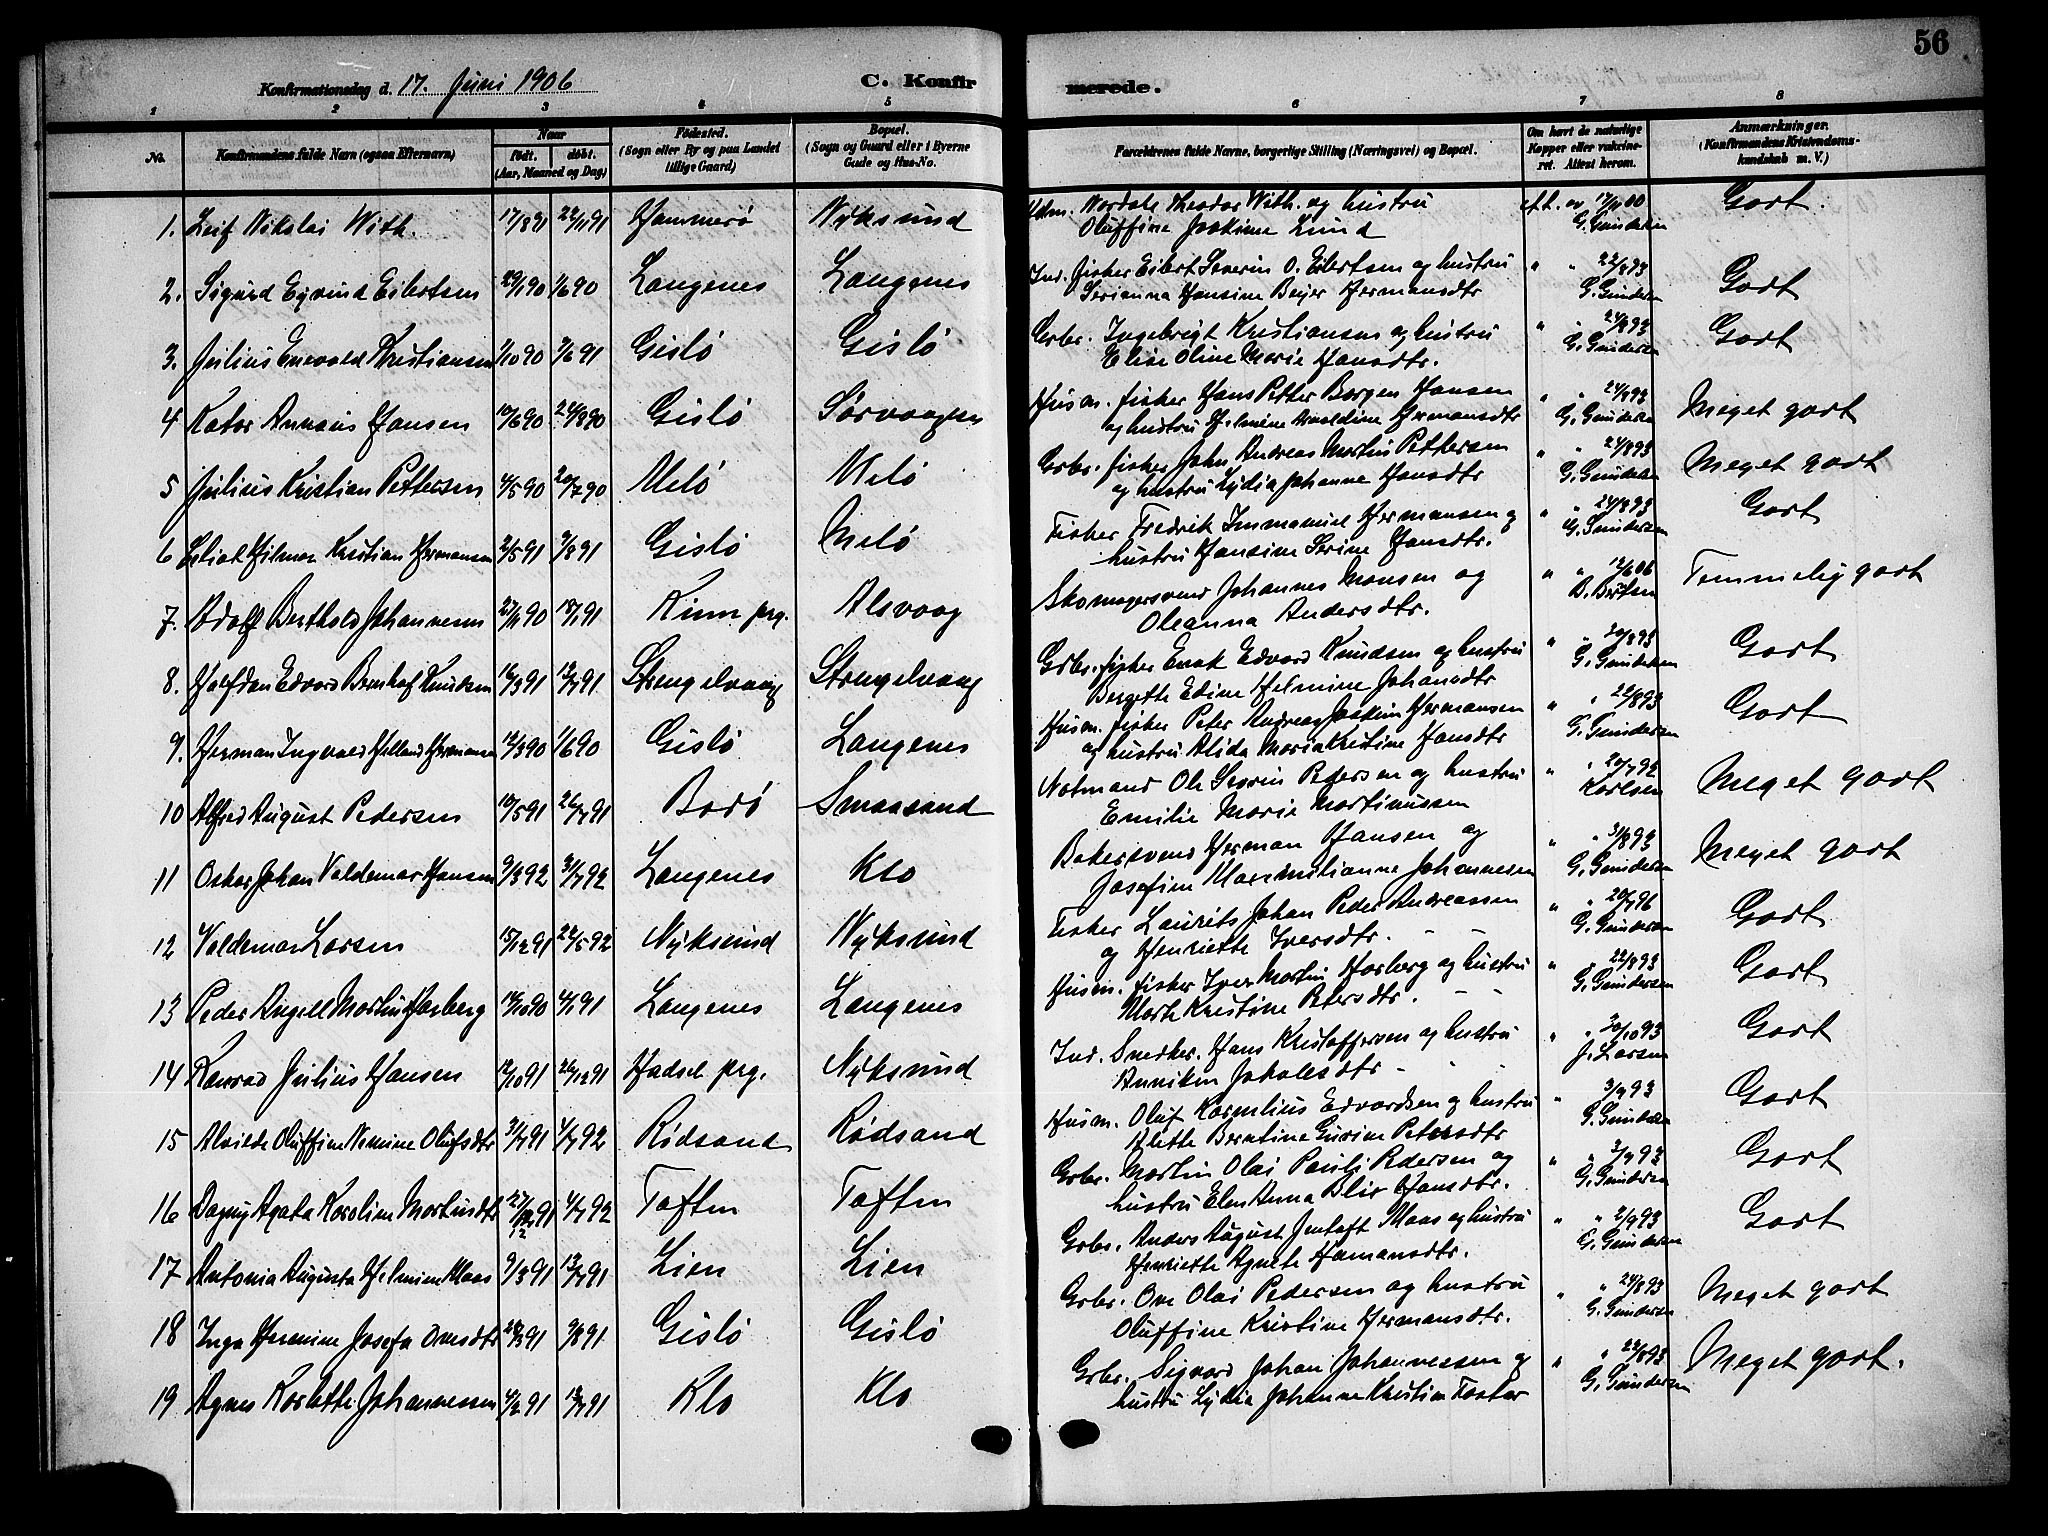 56
Konfirmationsdag d. 17. Juni 1906 C. Konfirmerede.
1 2 3 4 5 6 7 8
No. Konfirmandens fulde Navn (ogsaa Efternavn) Naar født. døbt. (Aar, Maaned og Dag) Fødested. (Sogn eller By og paa Landet tillige Gaard) Bopæl. (Sogn og Gaard eller i Byerne Gade og Hus-No.) Forældrenes fulde Navne, borgerlige Stilling (Næringsvei) og Bopæl. Om havt de naturlige Kopper eller vakcineret. Attest herom. Anmærkninger. (Konfirmandens Kristendomskundskab m. V.)
1. Leif Nikolai With. 22/11 91 Hammerø Nyksund Nordale Theodor With. og hustru Oluffine Joakime Lund eft. av 17/11 00 G. Gundersen Godt.
2. Sigurd Eyvind Eilertsen 29/1 90 1/6 90 Langenes Langenes Ind. fisker Eilert Severin O. Eilertsen og hustru Serianna Hansine Beyer Hermansdtr " " 22/8 93 G. Gundersen Godt
3. Julius Enevold Kristiansen 7/10 90 7/6 91 Gislø Gislø Grbr. Ingebrigt Kristiansen og hustru Elise Oline Marie Hansdtr. " " 24/8 93 G. Gundersen Godt
4 Kator Annæus Hansen 10/6 90 24/8 90 Gislø Sørvaagen Husm. fisker Hans Petter Borgen Hansen og hustru Helmine Arnoldine Hermansdtr " " 24/8 93 G. Gundersen Meget godt
5 Julius Kristian Pettersen 4/5 90 20/7 90 Melø Melø Grbr. fisker John Andreas Martin Pettersen og hustru Lydia Johanne Hansdtr " " 24/8 93 G. Gundersen Meget godt
6 Hilmar Kristian Hermansen 2/5 91 9/8 91 Gislø Melø Fisker Fredrik Immanuel Hermansen og hustru Hansine Serine Hansdtr. " " 24/8 93 G. Gundersen Godt
7. Adolf Berthold Johannesen 27/11 90 18/1 91 Kinn prg. Alsvaag Skomagersvend Johannes Monsen og Oleanna Andersdtr. " " 12/6 06 B. Temmelig godt
8. Halfdan Edvard Bernhof Knudsen 16/3 91 12/7 91 Strengelvaag Strengelvaag Grbr. fisker Enok Edvard Knudsen og hustru Bergette Edine Helmine Johansdtr " " 30/8 93 G. Gundersen Godt
9. Herman Ingvald Helland Hermansen 12/3 90 1/6 90 Gislø Langenes Husm. fisker Peter Andreas Joakim Hermansen og hustru Alida Maria Kristine Hansdtr " " 22/8 93 G. Gundersen Godt
10 Alfred August Pedersen 10/5 91 26/7 91 Barø Smaasand Notmand Ole Severin Pedersen og hustru Emilie Marie Martinussen " " 20/7 92 Karlsen Meget godt
11 Oskar Johan Valdemar Hansen 9/3 92 31/7 92 Langenes Klo Bakersvend Herman Hansen og Josefine Maximilianne Johannesen " " 31/8 93 G. Gundersen Meget godt
12 Valdemar Larsen 15/12 91 22/5 92 Nyksund Nyksund Fisker Laurits Johan Peder Andreassen og Henriette Iversdtr. " " 20/7 96 G. Gundersen Godt
13 Peder Angell Martin Harberg 14/10 90 4/1 91 Langenes Langenes Husm. fisker Iver Martin Harberg og hustru Marth Kristine Petersdtr. " " 22/8 93 G. Gundersen Godt
14 Konrad Julius Hansen 12/10 91 26/12 91 Hadsel prg. Nyksund Ind. Snedker. Hans Kristoffersen og hustru Anniken Jakobsdtr " " 30/10 93 J. Larsen Godt
15 Alvilde Oluffine Nemine Olufsdtr 31/7 91 4/7 92 Rødsand Rødsand Husm. Oluf Kornelius Edvardsen og hustru Alette Berntine Gurine Petersdtr " " 3/9 93 G. Gundersen Godt
16 Dagny Agata Karoline Martinsdtr 27/12 91 4/7 92 Toften Toften Grbr. Martin Olai Pauli Pedersen og hustru Elen Anna Hansdtr. " " 3/9 93 G. Gundersen Godt
17 Antonia Augusta Helmine Maas 9/3 91 12/7 91 Lien Lien Grbr. Anders August Jentoft Maas og hustru Henriette Agnete Hamansdtr. " " 2/9 93 G. Gundersen Godt
18 Inga Hermine Josefa Ovesdtr 20/3 91 9/8 91 Gislø Gislø Grbr. Ove Olai Pedersen og hustru Oluffine Kristine Hermansdtr. " " 24/8 93 G. Gundersen Meget godt
19 Agnes Karlotte Johannessen 4/2 91 12/7 91 Klo Klo Grbr. Sigvard Johan Johannessen og hustru Lydia Johanne Kristine Foster " " 22/8 93 G. Gundersen Meget godt.